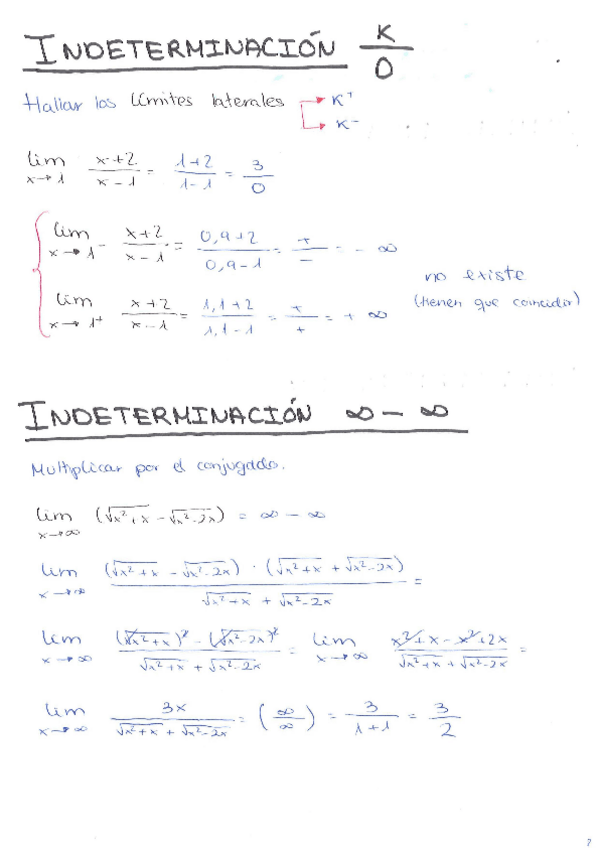 INDETERMINACIÓN K/0
Hallar los límites laterales → K⁺
→ K⁻
lim x→1 (x+2)/(x-1) = (1+2)/(1-1) = 3/0
lim x→1⁻ (x+2)/(x-1) = (0,9+2)/(0,9-1) = +/- = - ∞
no existe
(tienen que coincidir)
lim x→1⁺ (x+2)/(x-1) = (1,1+2)/(1,1-1) = +/+ = + ∞
INDETERMINACIÓN ∞ - ∞
Multiplicar por el conjugado.
lim x→∞ (√x²+x - √x²-2x) = ∞ - ∞
lim x→∞ (√x²+x - √x²-2x) · (√x²+x + √x²-2x) / √x²+x + √x²-2x =
lim x→∞ (√x²+x)² - (√x²-2x)² / √x²+x + √x²-2x = lim x→∞ x²+x-x²+2x / √x²+x + √x²-2x =
lim x→∞ 3x / √x²+x + √x²-2x = (∞/∞) = 3/(1+1) = 3/2
7